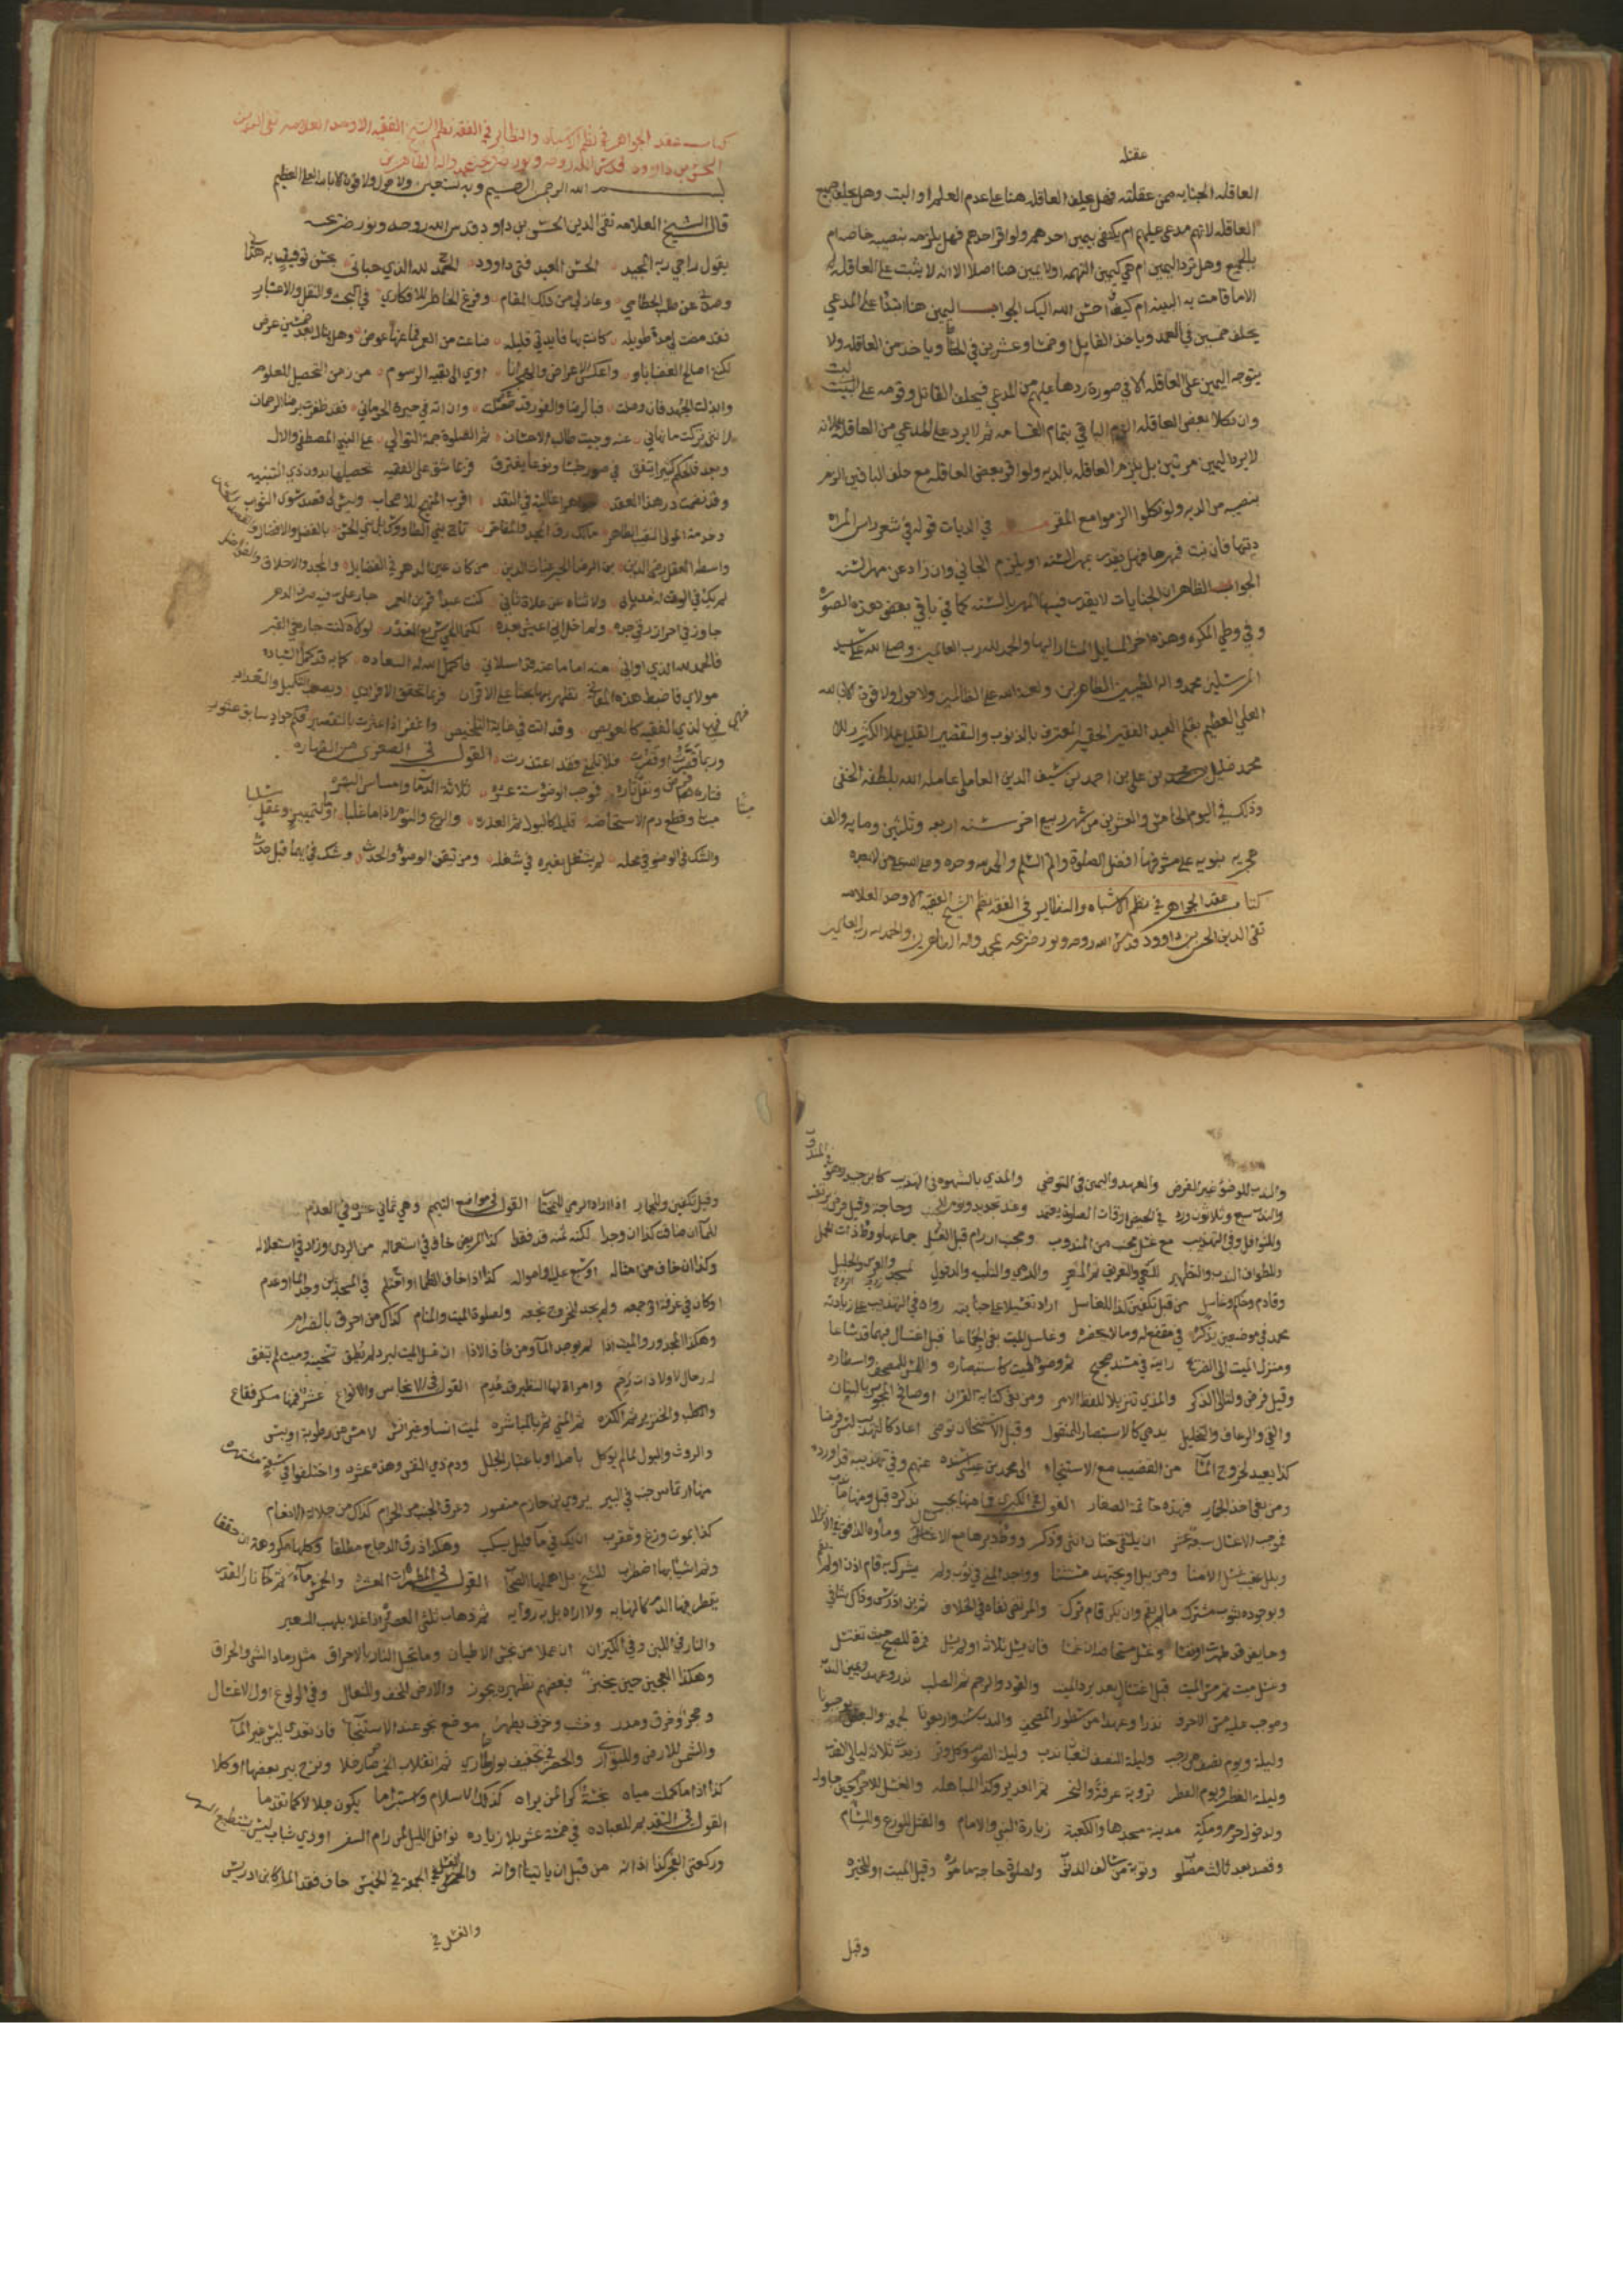 عقتله
العاقله الجنايه ممن عقلته فهل يحلف العاقله هنا على عدم العلم او البت وهل يحلف جميع
العاقله لانهم مدعى عليهم ام يكفى يمين احدهم ولو اقر احدهم فهل يلزمه بنصيبه خاصه ام
بالجميع وهل ترد اليمين ام هي كيمين التهمه او لا يمين هنا اصلا الا انه لا يثبت على العاقله
الا ما قامت به البينه ام كيف احسن الله اليك الجواب اليمين هنا ابتدا على المدعي
يحلف خمسين في العمد وياخذ القاتل او خمسا وعشرين في الخطأ وياخذ من العاقله ولا
يتوجه اليمين على العاقله الا في صورة ردها عليهم من المدعي فيحلف القاتل وقومه على البت
وان نكلا بعض العاقله الزم الباقي بتمام القسامه ثم لا يرد على المدعي من العاقله لانه
لا يرد اليمين مرتين بل يلزم العاقله بالديه ولو اقر بعض العاقله مع حلف الباقين الزم
بنصيبه من الديه ولو نكلوا الزموا مع المقر في الديات قوله في شعر راس المراه
ديتها فان نبت فمهرها فهل يقدر بمهر السنه او يلزم الجاني وان زاد عن مهر السنه
الجواب الظاهر ان الجنايات لا يقدر فيها المهر بالسنه كما في باقي بعض هذه الصوره
وفي وطي المكره وهذه اخر المسايل المشار اليها والحمد لله رب العالمين وصلى الله على سيد
المرسلين محمد واله الطيبين الطاهرين ولعنة الله على الظالمين ولا حول ولا قوة الا بالله
العلي العظيم بقلم العبد الفقير الحقير المعترف بالذنوب والتقصير القليل عملا الكثير زللا
محمد خليل بن علي بن احمد بن شيف الدين العاملي عامله الله بلطفه الخفي
وذلك في اليوم الخامس والعشرين من شهر ربيع اخر سنه اربعه وثلثين ومايه والف
هجريه نبويه على مشرفها افضل الصلوة واتم التسليم والحمد لله وحده وصلى الله على من لا نبي بعده
كتاب عقد الجواهر في نظم الاشباه والنظاير في الفقه نظم الشيخ الفقيه الاوحد العلامه
تقي الدين الحسن بن داوود قدس الله روحه ونور ضريحه بمحمد واله الطاهرين والحمد لله رب العالمين
كتاب عقد الجواهر في نظم الاشباه والنظاير في الفقه نظم الشيخ الفقيه الاوحد العلامه تقي الدين
الحسن بن داوود قدس الله روحه ونور ضريحه بمحمد واله الطاهرين
بسم الله الرحمن الرحيم وبه نستعين ولا حول ولا قوة الا بالله العلي العظيم
قال الشيخ العلامه تقي الدين الحسن بن داود قدس الله روحه ونور ضريحه
يقول راجي ربه المجيد الحسن العبد فتى داوود الحمد لله الذي حباني بحسن توفيق به هداني
وصدني عن طلب الحطام وعاذلي من ذلك المقام وفرغ الخاطر للافكار في البحث والنقل والاعتبار
فقد مضت لي مدة طويله كانت بها فايدتي قليله ضاعت من العمر فما عنها عوض وهل ينال بعد خمسين غرض
لكنني اصالح القضايا واعكس الاعراض والهجرانا اوي الى بقية الرسوم من زمن التحصيل للعلوم
وابذلت الجهد فان وصلت فبالرضا والفوز قد حصلت وان انه في حيرة الحرمان فقد ظفرت برضا الرحمان
لانني تركت ما نهاني عنه وجيت طالب الاحسان ثم الصلوة جمة التوالي على النبي المصطفى والال
وبعد فالحكم كثيرا يتفق في صور طبعا ونوعا يفترق فربما شق على الفقيه تحصيلها بدون ذي التنبيه
وقد نضمت در هذا العقد جواهرا غالية في النقد اقرب المنهج للاصحاب وليس لي قصد سوى الثواب
وخدمة المولى النقيب الطاهر مالك رق المجد والمفاخر تاج بني الطاووس بل بني الحسن بالفضل والافضال
واسط العقل رضي الدين بن الرضا الحبر غياث الدين من كان عين الدهر في الفضايل والمجد والاخلاق والفواضل
لم يك في الوقت له مدان ولا ثناه عن علاه ثاني كنت عبدا قربن العمر جار على سفيه صرف الدهر
جاوز في احراز رقي جده ولما خل ابي اعيش بعده لكنما اللي سريع الغدر لولاه كنت جاره في القبر
فالحمد لله الذي اواني منه اماما عنه قد اسلاني فاكمل الله له السعاده كما به قد كمل السياده
مولاي فاضبط هذه المعاني تظهر بها بحثا على الاقران فربما تحقق الافراد ويصعب التكميل والتعداد
فهي لدى الفقيه كالعويص وقد اتت في غاية التلخيص واغفر اذا عثرت بالتقصير فكم جواد سابق عثور
وربما قصرت او قفرت فلا تلم فقد اعتذرت القول في الصغرى من الطهاره
فتارة فرض ونفل تاره فموجب الوضوء ستة عشره ثلاثة الدما وامساس البشره
ميتا وقطع دم الاستحاضه قليلا كالبول ثم العذره والريح والنوم اذا ما غلبا او لتمييز وعقل سلبا
والشك في الوضو في محله لم يشتغل بغيره في شغله ومن تيقن الوضوء والحدث وشك في ايهما قبل حدث
والندب للوضوء غير الفرض والعهد واليمين في التوضي والمذي بالشهوه في التهذيب
والندب سبع وثلاثون ورد في الحيض اوقات الصلوة يعتمد وعند تجديد ونوم الجنب وحاجة وقبل
والنوافل وفي التهذيب مع غسل مجنب من المندوب ومجنب ان رام قبل الغسل جماعه او وطا ذات الحمل
وللطواف الندب والتطهير للسعي والتعريف ثم المشعر والرمي والتلبيه والدخول لمسجد
وقادم وحاكم وغاسل من قبل تكفين كذا للغاسل اراد تغسيلا على جنابه رواه في التهذيب على زيادته
محمد في موضعين يذكره في مقنع له ومن لا يحضره وغاسل الميت بغى الجماعا قبل اغتسال فيهما قد شاعا
ومنزل الميت الى الضريح رايته في مسند صحيح ثم وضوء الميت كاستبصاره واللمس للمصحف واسطاره
وقيل فرض ولتالي الذكر والمذي تنزيلا للفظ الامر ومن بغى كتابة القران او صافح المجوس بالبنان
والقي والرعاف والتخليل يدمي كالاستبصار المنقول وقبل الاستنجاء توضى اعاد كالتهذيب ليس فرضا
كذا يعيد لخروج الماء من القضيب مع الاستنجاء الى محمد بن عيسى سنده عنهم وفي تهذيبه قد اورده
ومن بغى اخذ الجمار فهذه خاتمة الصغار القول في الكبرى فما منها يجب نذكره قبل ومنها ما ندب
فموجب الاغتسال سبعة عشر ان يلتقي ختان انثى وذكر ووطئ دبرها مع الانزال وماؤه الدافق
وبلل عقيب غسل الامنا ومن يبل او يجتهد مستثنى وواجد المني في ثوب ولم يشرك به قام اذن او لم ينم
وبوجوده بثوب مشترك مالم يقم وان يكن قام ترك والمرتضى نفاه في الخلاف ثم بن ادريس وذاك شافي
وحايض قد طهرت او نفسا وغسل مستحاضه ان غمسا فان يسل ثلاثة او لم يسل فمرة للصبح حيث تغتسل
وغسل ميت ثم مس الميت قبل اغتسال بعد برد الميت والقود والرجم ثم الصلب نذر وعهد ويمين الندب
وموجب عليه مس الاحرف نذرا وعهدا من سطور المصحف والندب ست واربعونا لجمعة
وليلة ويوم نصف من رجب وليلة النصف لشعبان ندب وليلة الصوم وكل وتر زيدت ثلاث ليالي القدر
وليلة الفطر ويوم الفطر تروية عرفة والنحر ثم الغدير وكذا المباهله والغسل للاحرام حين حاوله
ولدخول حرم ومكة مدينة مسجدها والكعبة زيارة النبي والامام والقتل للوزغ والشام
وقصد بعد ثالث مصلوب وتوبة من سالف الذنوب ولصلوة حاجة مأثوره وقيل الميت او للخيره
وقيل
وقيل تكفين وللجمار اذا اراد الرمي للجمار القول في مواضع التيمم وهي ثماني عشره في العدم
للماء ان ضاف كذا ان وجدا لكنه ثمنه قد فقط كذا المريض خاف في استعماله من الردى وزاد في استعلاله
وكذا ان خاف من احتاله اوسبع على امواله كذا اذا خاف الظما او احتلم في المسجدين وجد الماء او عدم
او كان في عرفة او جمعه ولم يجد للخروج نجعه ولصلوة الميت والمنام كذاك من احرق بالضرام
وهكذا المجدور والميت اذا لم يوجد الماء ومن خاف الاذا ان غسل الميت لبرد لم يطق تسخينه وميت لم يتفق
له رجال لا ولا ذات رحم وامراة لها النظير قد عدم القول في الانجاس والانواع عشر فمنها مسكر فقاع
والكلب والخنزير ثم الكفره ثم المني ثم بالمباشره لميت انسا وغير انس لا مس من رطوبة او يبس
والروث والبول لما لم يوكل باصله او باعتبار الجلل ودم ذي النفس وهذه عشره واختلفوا في سبعة مشتهره
منها ارتماس جنب في البير يروي بن حازم منصور وعرق الجنب من الحرام كذاك من جلالة الانعام
كذا بموت وزغ وعقرب ان يك في ماء قليل يسكب وهكذا ذرق الدجاج مطلقا وكلها مكروهة ان حققا
القول في المطهرات العشره
يقطر فيها الدم كالنهايه ولا اراه بل به روايه ثم ذهاب ثلثي العصير اذا غلا بلهب السعير
والنار في اللبن وفي الكيزان ان عملا من نجس الاطيان وما تحيل النار بالاحراق مثل رماد الشي والحراق
وهكذا العجين حين يختبز فبعضهم تطهيره يجوز والارض للخف وللنعال وفي الولوغ اول الاغسال
وحجر وخرق ومدر وخشب وخزف يطهر موضع نجو عند الاستنجاء فان تعدى ليس غير الماء
والشمس للارض وللبواري والحصر في تجفيف بول طاري ثم انقلاب الخمر صار خلا ونزح بير بعضها او كلا
كذا اذا ما كملت مياه نجسة كرا لمن يراه كذلك الاسلام واستبرا ما يكون جلالا كما تقدما
القول في التقديم للعباده في خمسة عشر بلا زياده نوافل الليل لمن رام السفر او ذي شباب ليس يستطيع السهر
وركعتي الفجر كذا اذانه من قبل ان ياتيا اوانه والغسل في الجمعة في الخميس خاف فقد الماء كابن ادريس
والغسل في